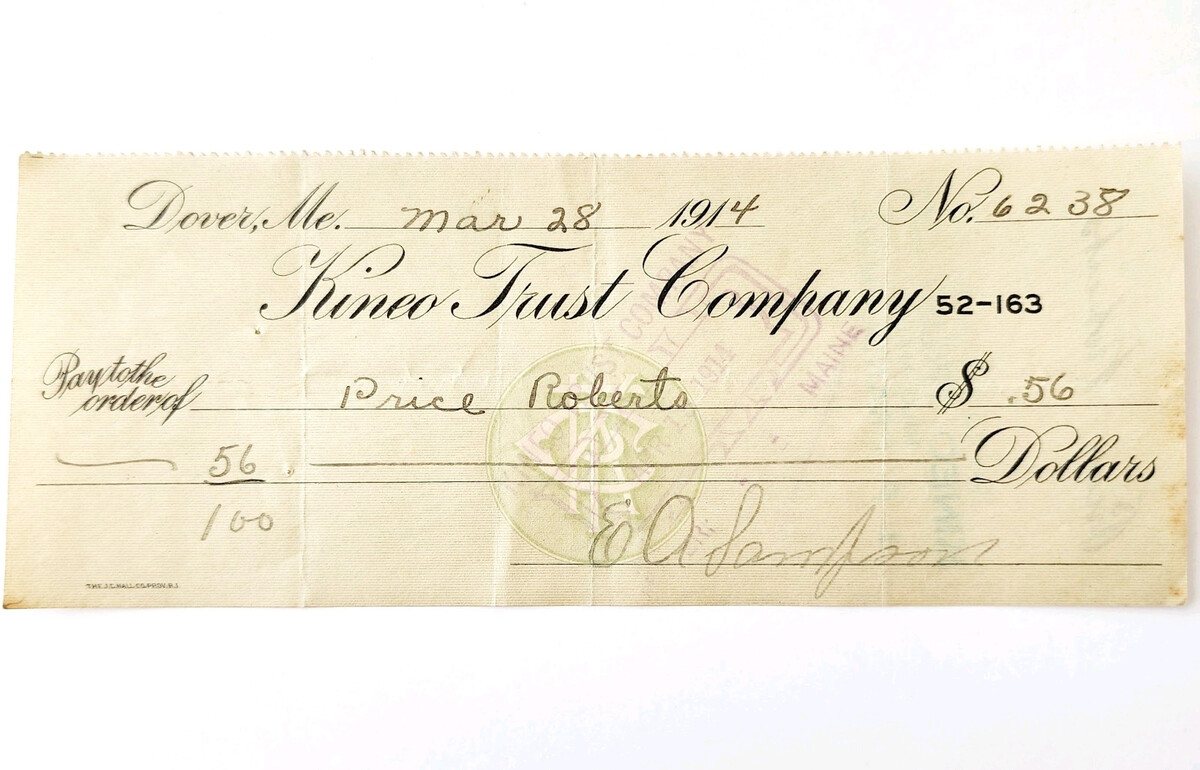 Dover, Me. Mar 28 1914 No. 6238
Kineo Trust Company 52-163
Pay to the order of Price Roberts $ .56
56/100 Dollars
E A Sampson
THE J.C. HALL CO. PROV. R.I.
COMPANY
1914
MAINE